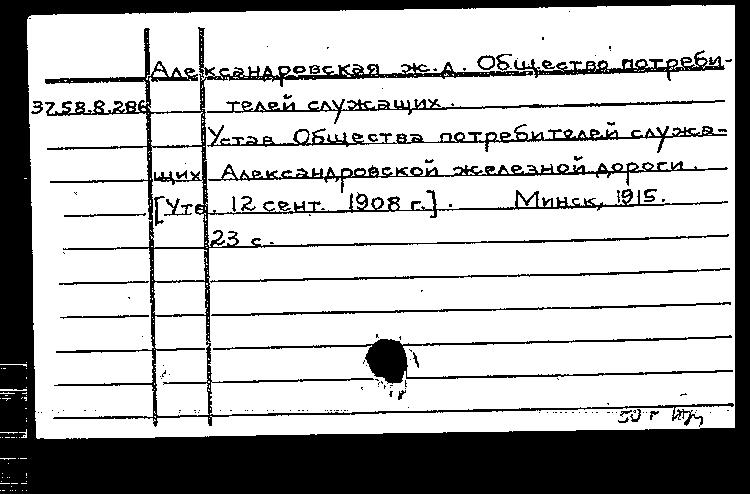 Александровская ж.д. Общество потреби-
37.58.8.286 телей служащих.
Устав Общества потребителей служа-
щих Александровской железной дороги.
[Утв. 12 сент. 1908 г.]. Минск, 1915.
23 с.
50 г